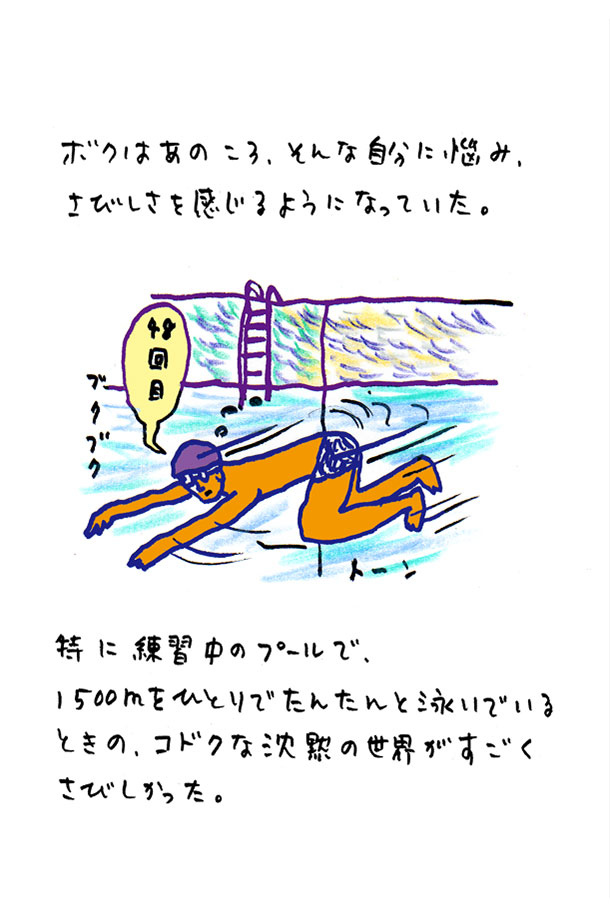 ボクはあのころ、そんな自分に悩み、
さびしさを感じるようになっていた。
48
回
目
ブクブク
トーン
特に練習中のプールで、
1500mをひとりでたんたんと泳いでいる
ときの、コドクな沈黙の世界がすごく
さびしかった。